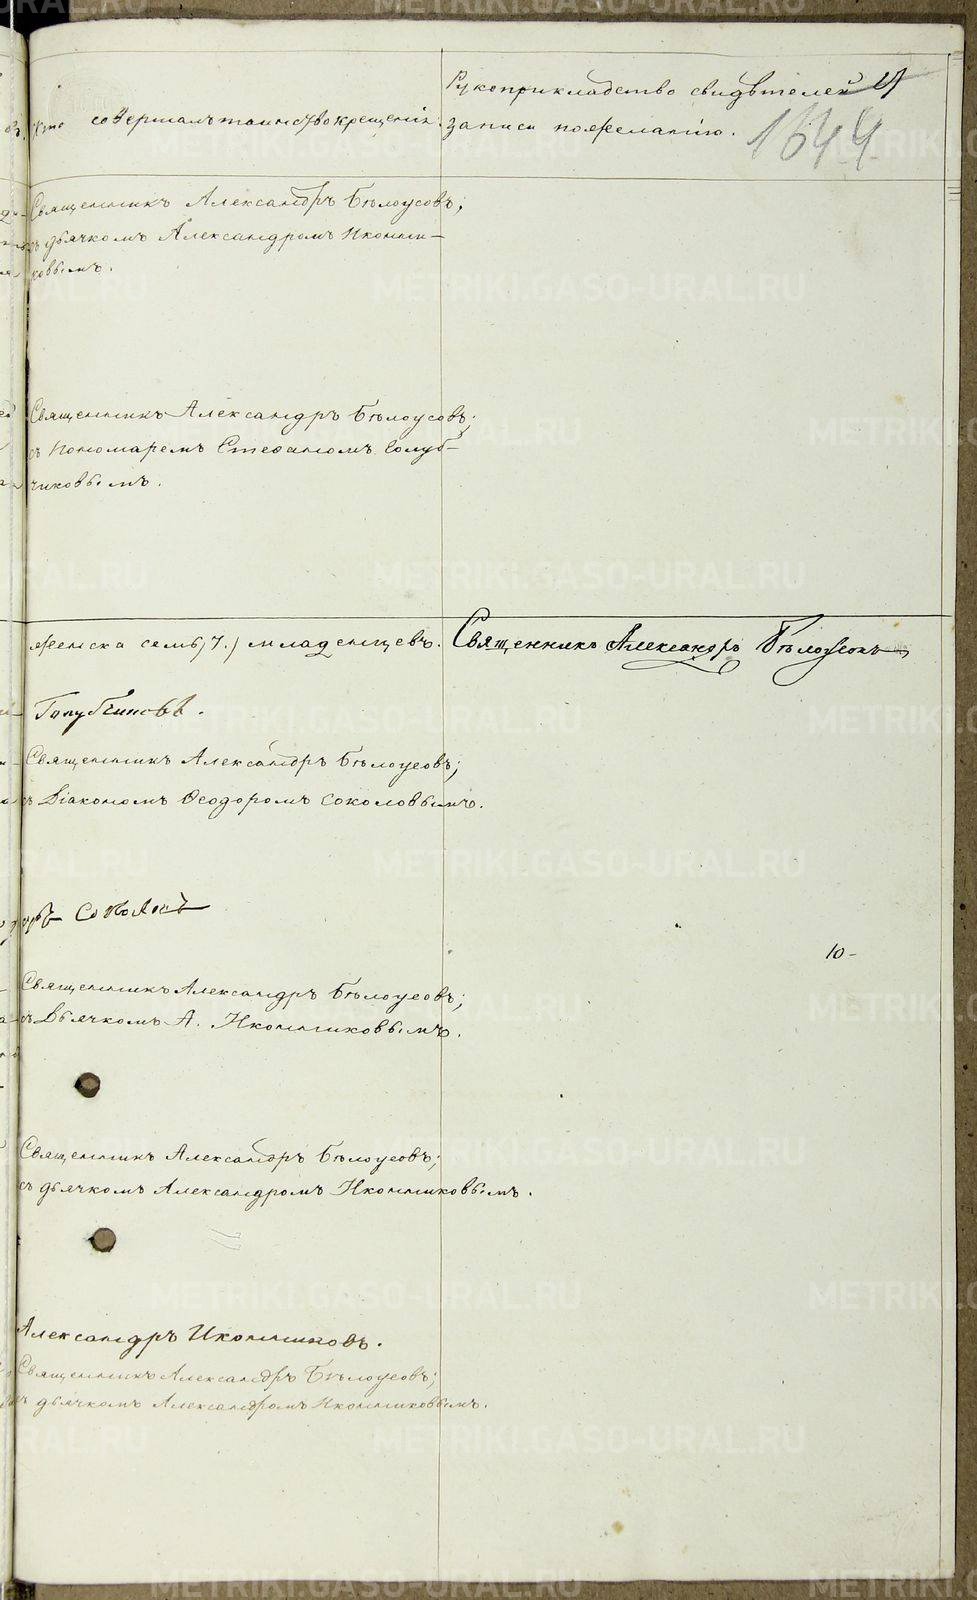 Рукоприкладство свидѣтелей
Кто совершалъ таинство крещенія. записи по желанію. 1644
Священникъ Александръ Бѣлоусовъ;
съ дьячкомъ Александромъ Иконни-
ковымъ.
Священникъ Александръ Бѣлоусовъ;
съ пономаремъ Стефаномъ Голуб-
чиковымъ.
женска семь /7./ младенцевъ. Священникъ Александръ Бѣлоусовъ
Голубчиковъ.
Священникъ Александръ Бѣлоусовъ;
съ Діакономъ Ѳеодоромъ Соколовымъ.
Соколовъ
10-
Священникъ Александръ Бѣлоусовъ;
съ Дьячкомъ А. Иконниковымъ.
Священникъ Александръ Бѣлоусовъ;
съ дьячкомъ Александромъ Иконниковымъ.
Александръ Иконниковъ.
Священникъ Александръ Бѣлоусовъ;
съ дьячкомъ Александромъ Иконниковымъ.
METRIKI.GASO-URAL.RU